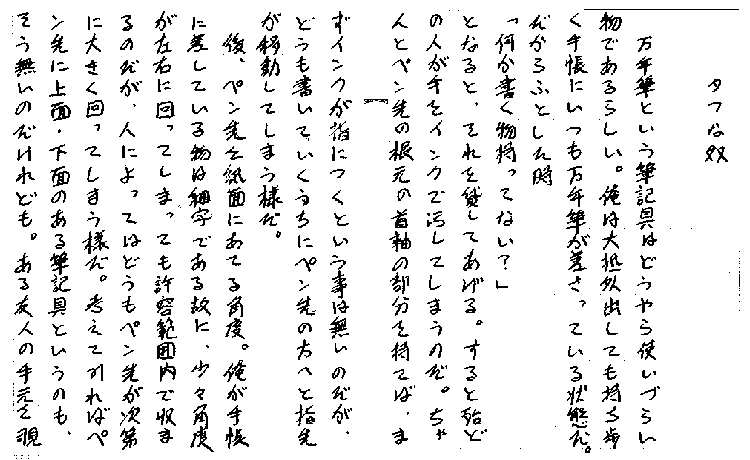 タフな奴
万年筆という筆記具はどうやら使いづらい
物であるらしい。俺は大抵外出しても持ち歩
く手帳にいつも万年筆が差さっている状態だ。
だがらふとした時
「何か書く物持ってない？」
となると、それを貸してあげる。すると殆ど
の人が手をインクで汚してしまうのだ。ちゃ
んとペン先の根元の首軸の部分を持てば、ま
ずインクが指につくという事は無いのだが、
どうも書いていくうちにペン先の方へと指先
が移動してしまう様だ。
後、ペン先を紙面にあてる角度。俺が手帳
に差している物は細字である故に、少々角度
が左右に回ってしまっても許容範囲内で収ま
るのだが、人によってはどうもペン先が次第
に大きく回ってしまう様だ。考えてみればペ
ン先に上面・下面のある筆記具というのも、
そう無いのだけれども。ある友人の手元を現